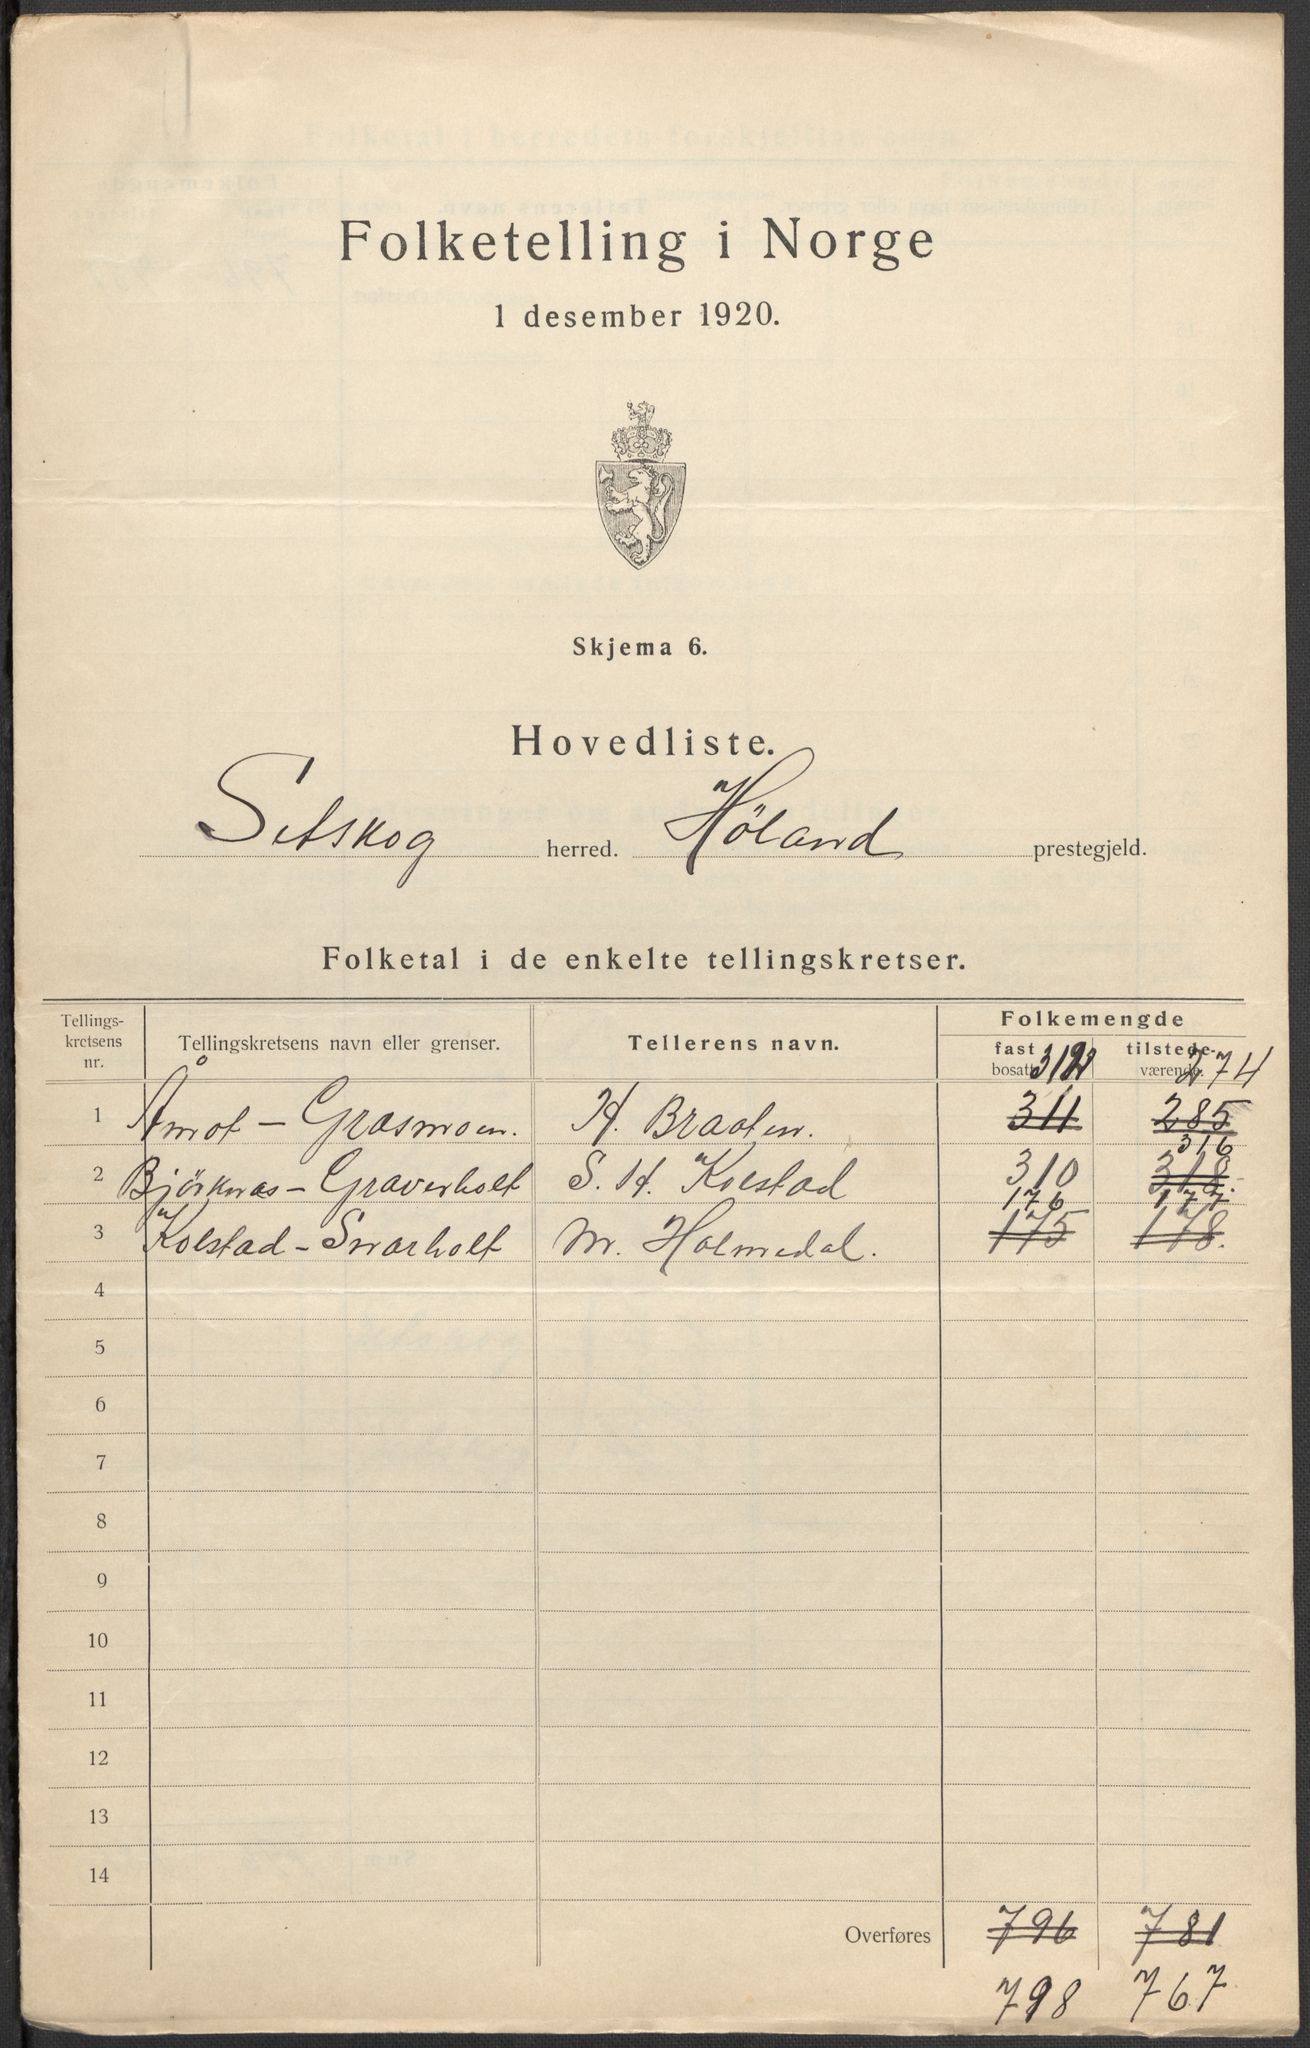 Folketelling i Norge
1 desember 1920.
Skjema 6.
Hovedliste.
Setskog herred. Høland prestegjeld.
Folketal i de enkelte tellingskretser.
Tellings-kretsens nr. Tellingskretsens navn eller grenser. Tellerens navn. Folkemengde
fast bosatt tilstede-værende.
312 274
1 Åmot - Grasmoen. H. Braaten. 311 285
316
2 Bjørknas - Graverholt S. H. Kolstad 310 318.
176 177
3 Kolstad - Svarholt M. Holmedal. 175 178.
4
5
6
7
8
9
10
11
12
13
14
Overføres 796 781
798 767